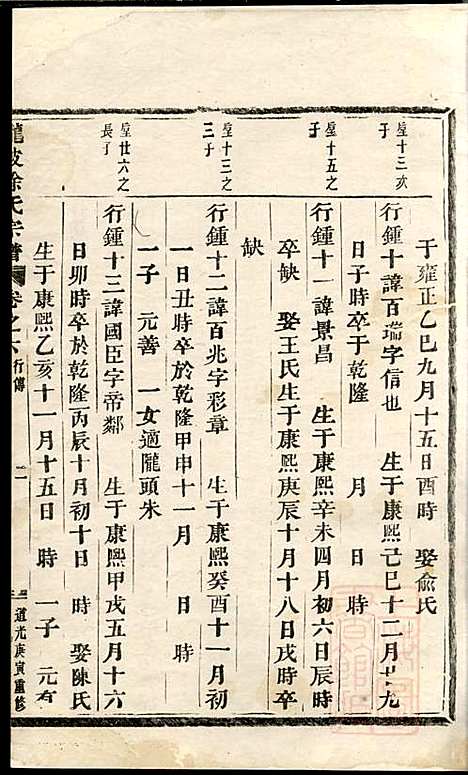 于雍正乙巳九月十五日酉時　娶俞氏
星十三次子
行鍾十諱百瑞字信也　生于康熙己巳十二月廿九
日子時卒于乾隆　月　日　時
星十五之子
行鍾十一諱景昌　生于康熙辛未四月初六日辰時
卒缺　娶王氏生于康熙庚辰十月十八日戌時卒
缺
星十三之三子
行鍾十二諱百兆字彩章　生于康熙癸酉十一月初
一日丑時卒於乾隆甲申十一月　日　時
一子　元善　一女適隴頭朱
星廿六之長子
行鍾十三諱國臣字帝鄰　生于康熙甲戌五月十六
日卯時卒於乾隆丙辰十月初十日　時　娶陳氏
生于康熙乙亥十一月十五日　時　一子　元有
徐氏宗譜　卷之六　行傳　二　道光庚寅重修